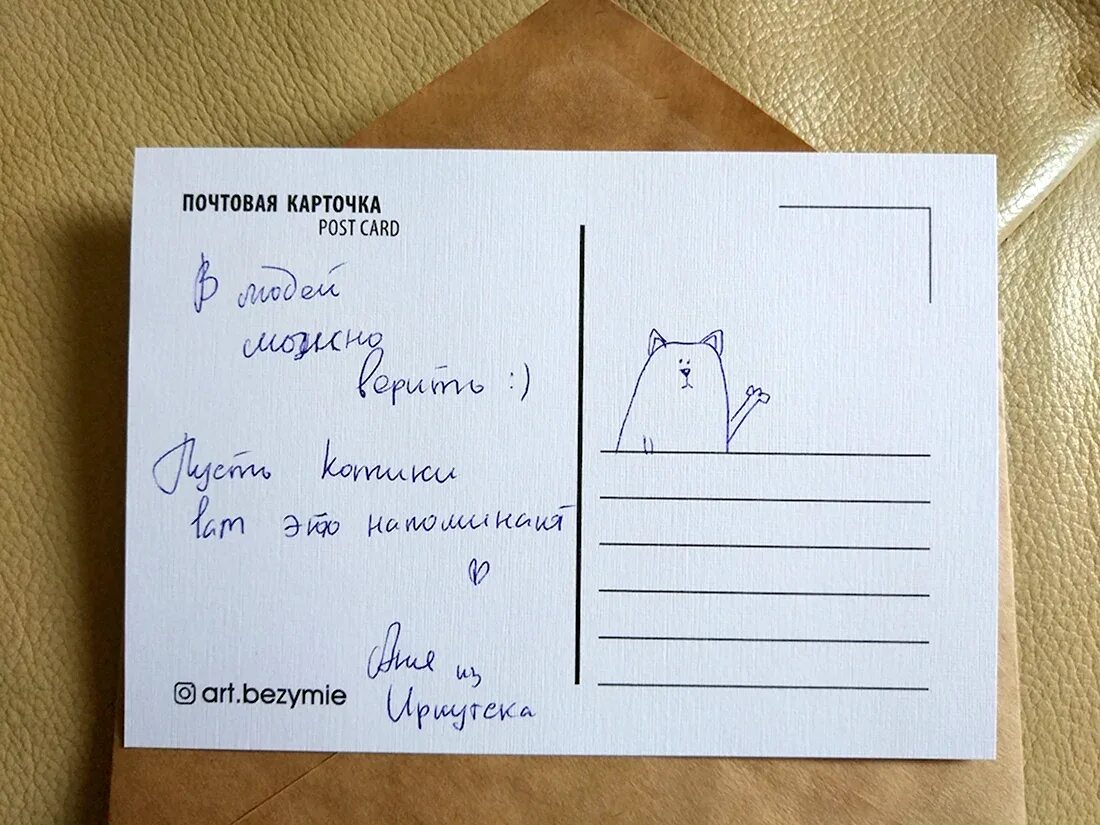 ПОЧТОВАЯ КАРТОЧКА
POST CARD
В людей
можно
верить :)
Пусть котики
вам это напоминают
♡
Аня из
Иркутска
art.bezymie